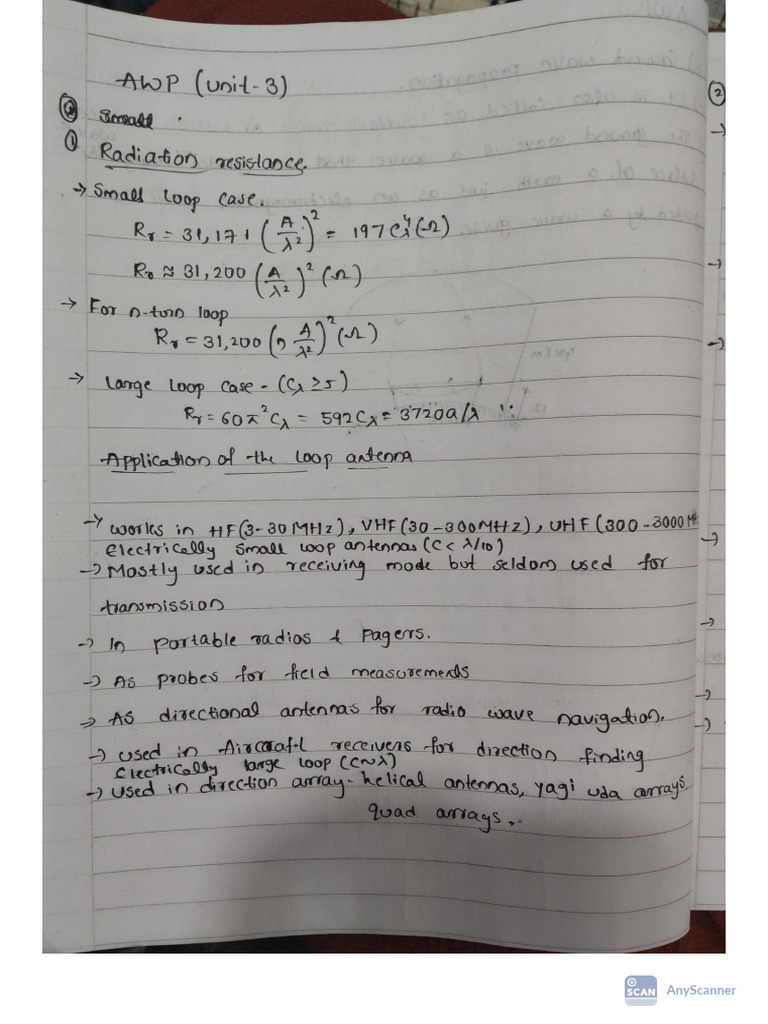 AWP (Unit-3)
Small
① Radiation resistance.
→ Small Loop case.
Rr = 31,171 (A/λ²)² = 197 Cλ⁴ (Ω)
Rr ≈ 31,200 (A/λ²)² (Ω)
→ For n-turn loop
Rr = 31,200 (n A/λ²)² (Ω)
→ Large Loop case - (Cλ ≥ 5)
Rr = 60π² Cλ = 592 Cλ = 3720 a/λ
Application of the Loop antenna
→ works in HF (3-30 MHz), VHF (30-300 MHz), UHF (300-3000 M
Electrically small loop antennas (C < λ/10)
→ Mostly used in receiving mode but seldom used for
transmission
→ In portable radios & Pagers.
→ As probes for field measurements
→ As directional antennas for radio wave navigation.
→ used in Aircraft receivers for direction finding
Electrically large loop (C~λ)
→ used in direction array - helical antennas, yagi uda arrays,
quad arrays.
②
SCAN AnyScanner